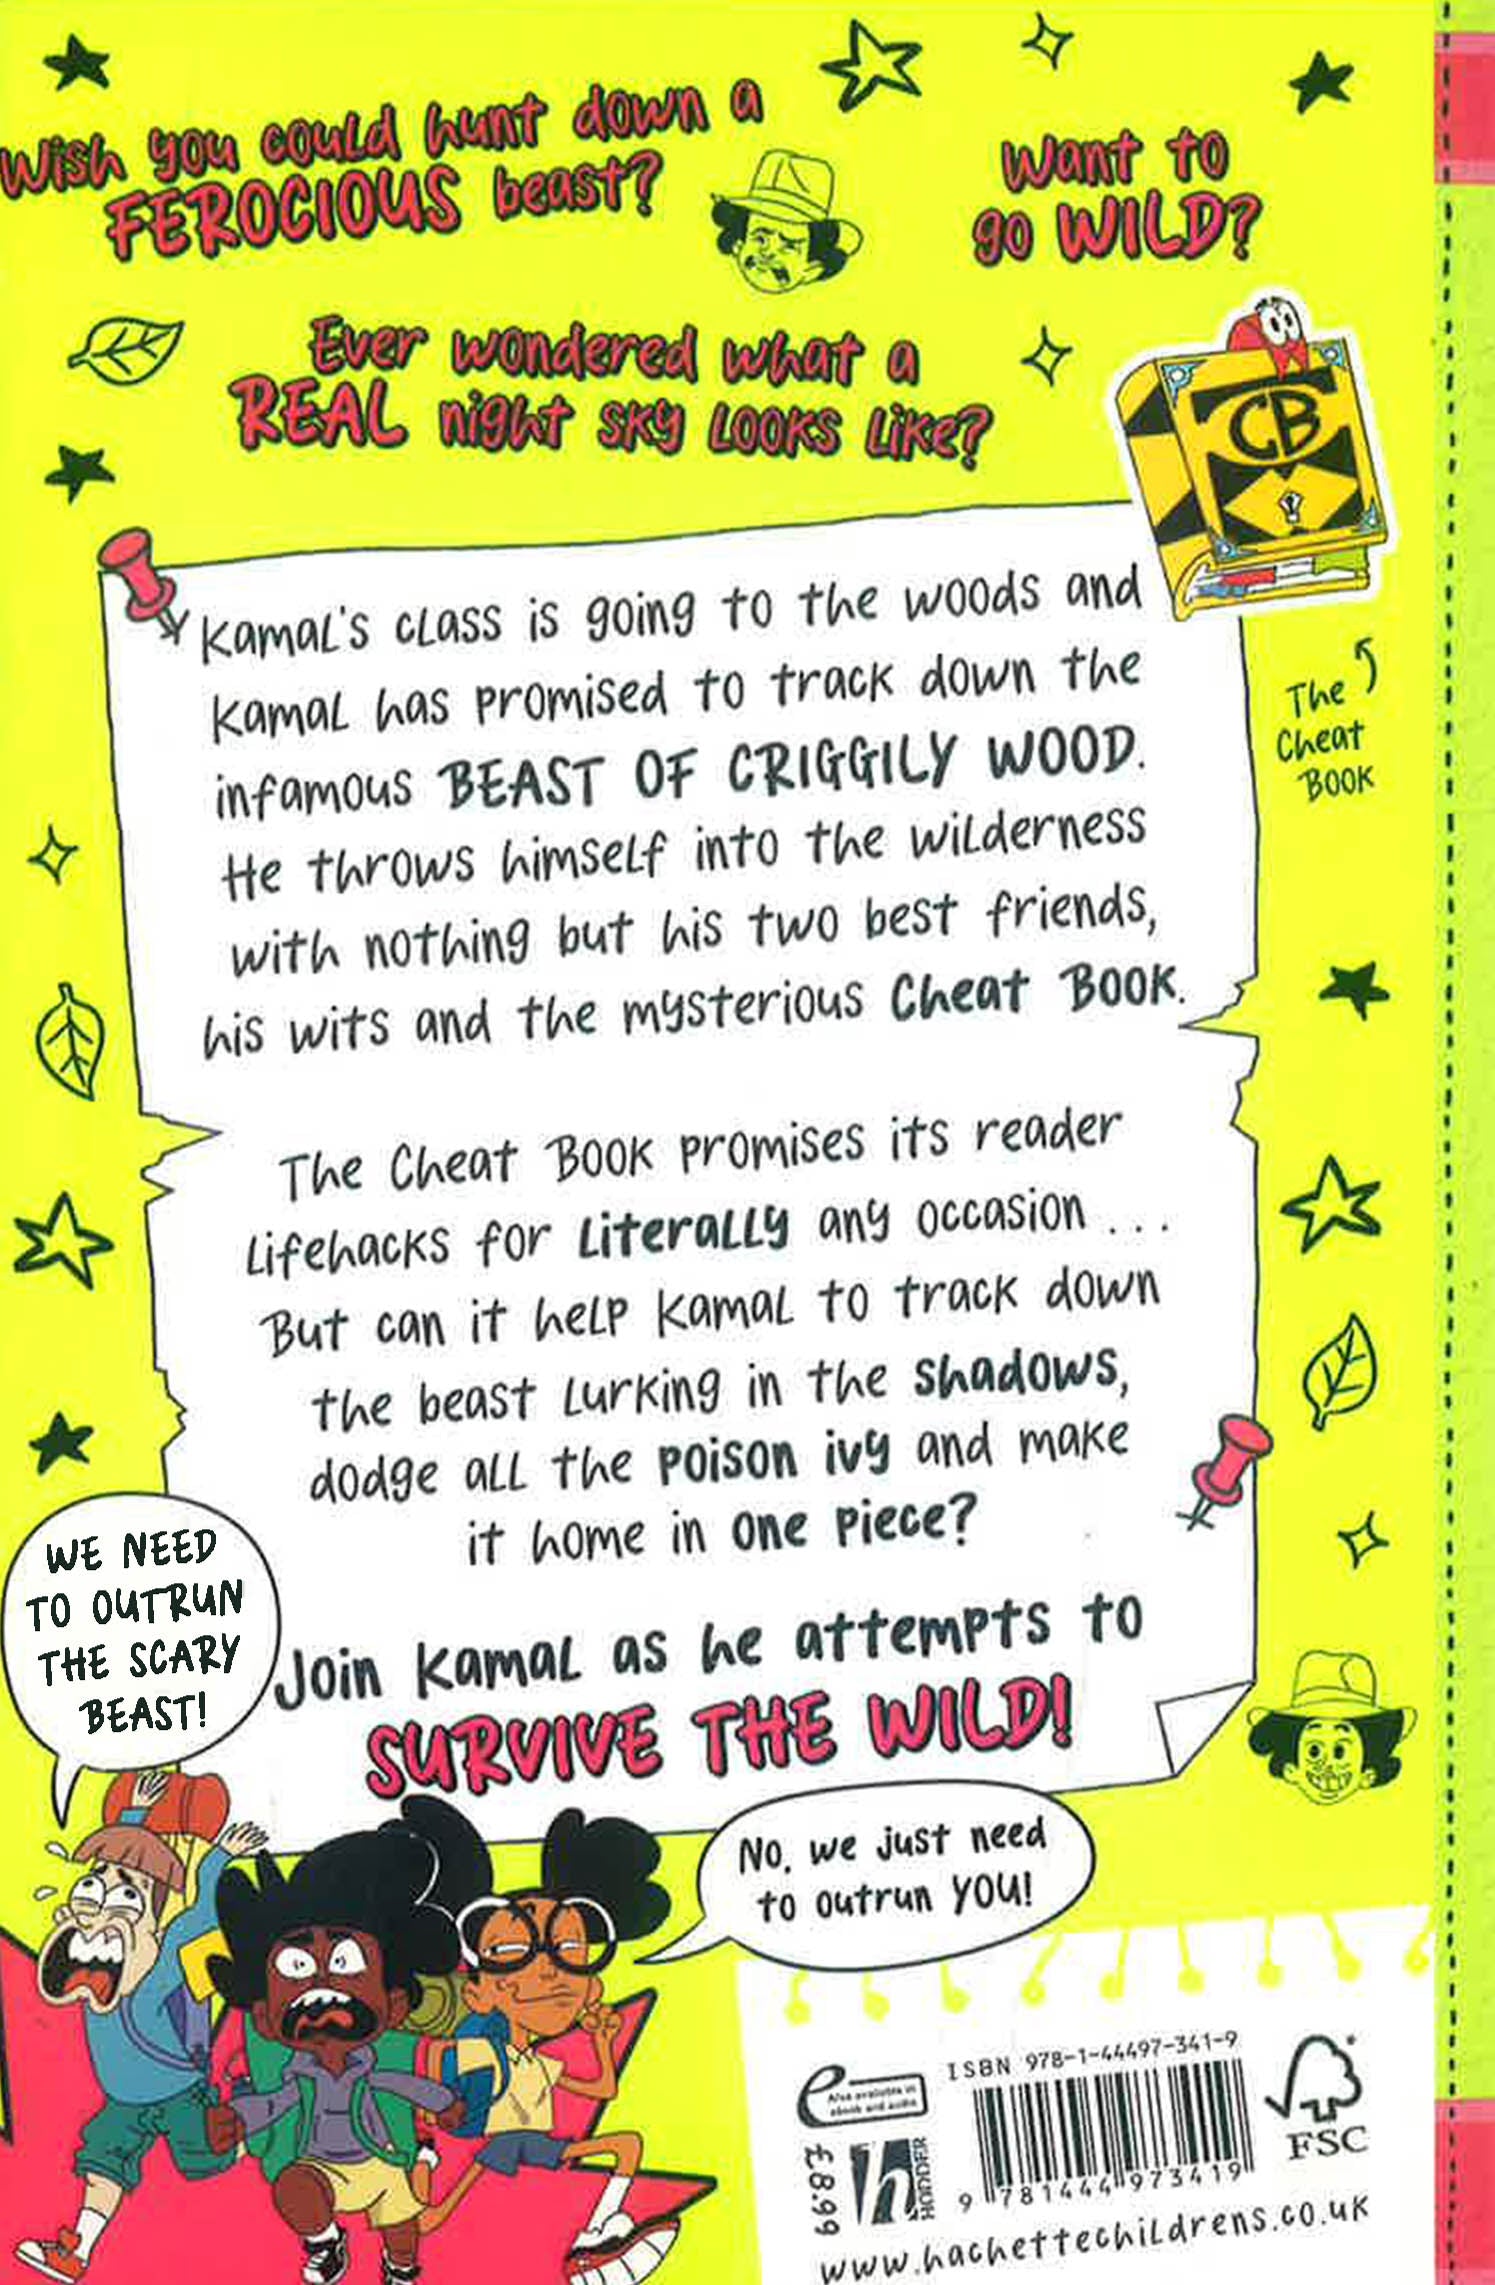 Wish you could hunt down a
FEROCIOUS beast?
Want to
go WILD?
Ever wondered what a
REAL night sky looks like?
CB
The
Cheat
Book
Kamal's class is going to the woods and
Kamal has promised to track down the
infamous BEAST OF CRIGGILY WOOD.
He throws himself into the wilderness
with nothing but his two best friends,
his wits and the mysterious Cheat Book.
The Cheat Book promises its reader
lifehacks for literally any occasion ...
But can it help Kamal to track down
the beast lurking in the shadows,
dodge all the poison ivy and make
it home in one piece?
Join Kamal as he attempts to
SURVIVE THE WILD!
WE NEED
TO OUTRUN
THE SCARY
BEAST!
No, we just need
to outrun YOU!
ISBN 978-1-44497-341-9
Also available in
ebook and audio
£8.99
h
HODDER
9 781444 973419
FSC
www.hachettechildrens.co.uk